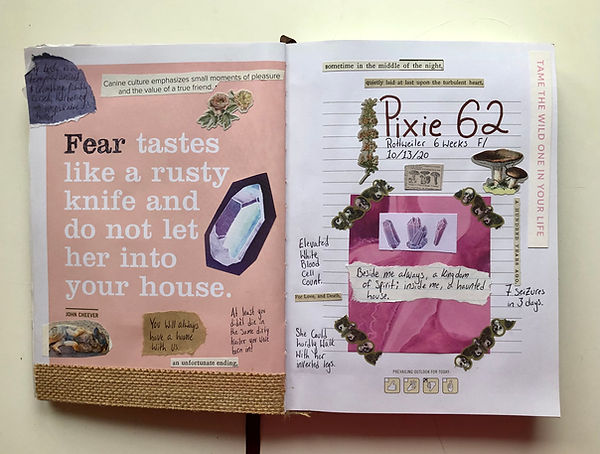 Canine culture emphasizes small moments of pleasure
and the value of a true friend.
Fear tastes
like a rusty
knife and
do not let
her into
your house.
JOHN CHEEVER
You will always
have a home
with us.
At least you
didn't die in
the same dirty
trailer you were
born in!
an unfortunate ending,
sometime in the middle of the night,
quietly laid at last upon the turbulent heart,
Pixie 62
Rottweiler 6 weeks F/
10/13/20
TAME THE WILD ONE IN YOUR LIFE
Elevated
White
Blood
Cell
Count.
Beside me always, a kingdom
of Spirit; inside me, a haunted
house.
For Love, and Death,
7 Seizures
in 3 days.
She could
hardly walk
with her
inverted legs.
PREVAILING OUTLOOK FOR TODAY: